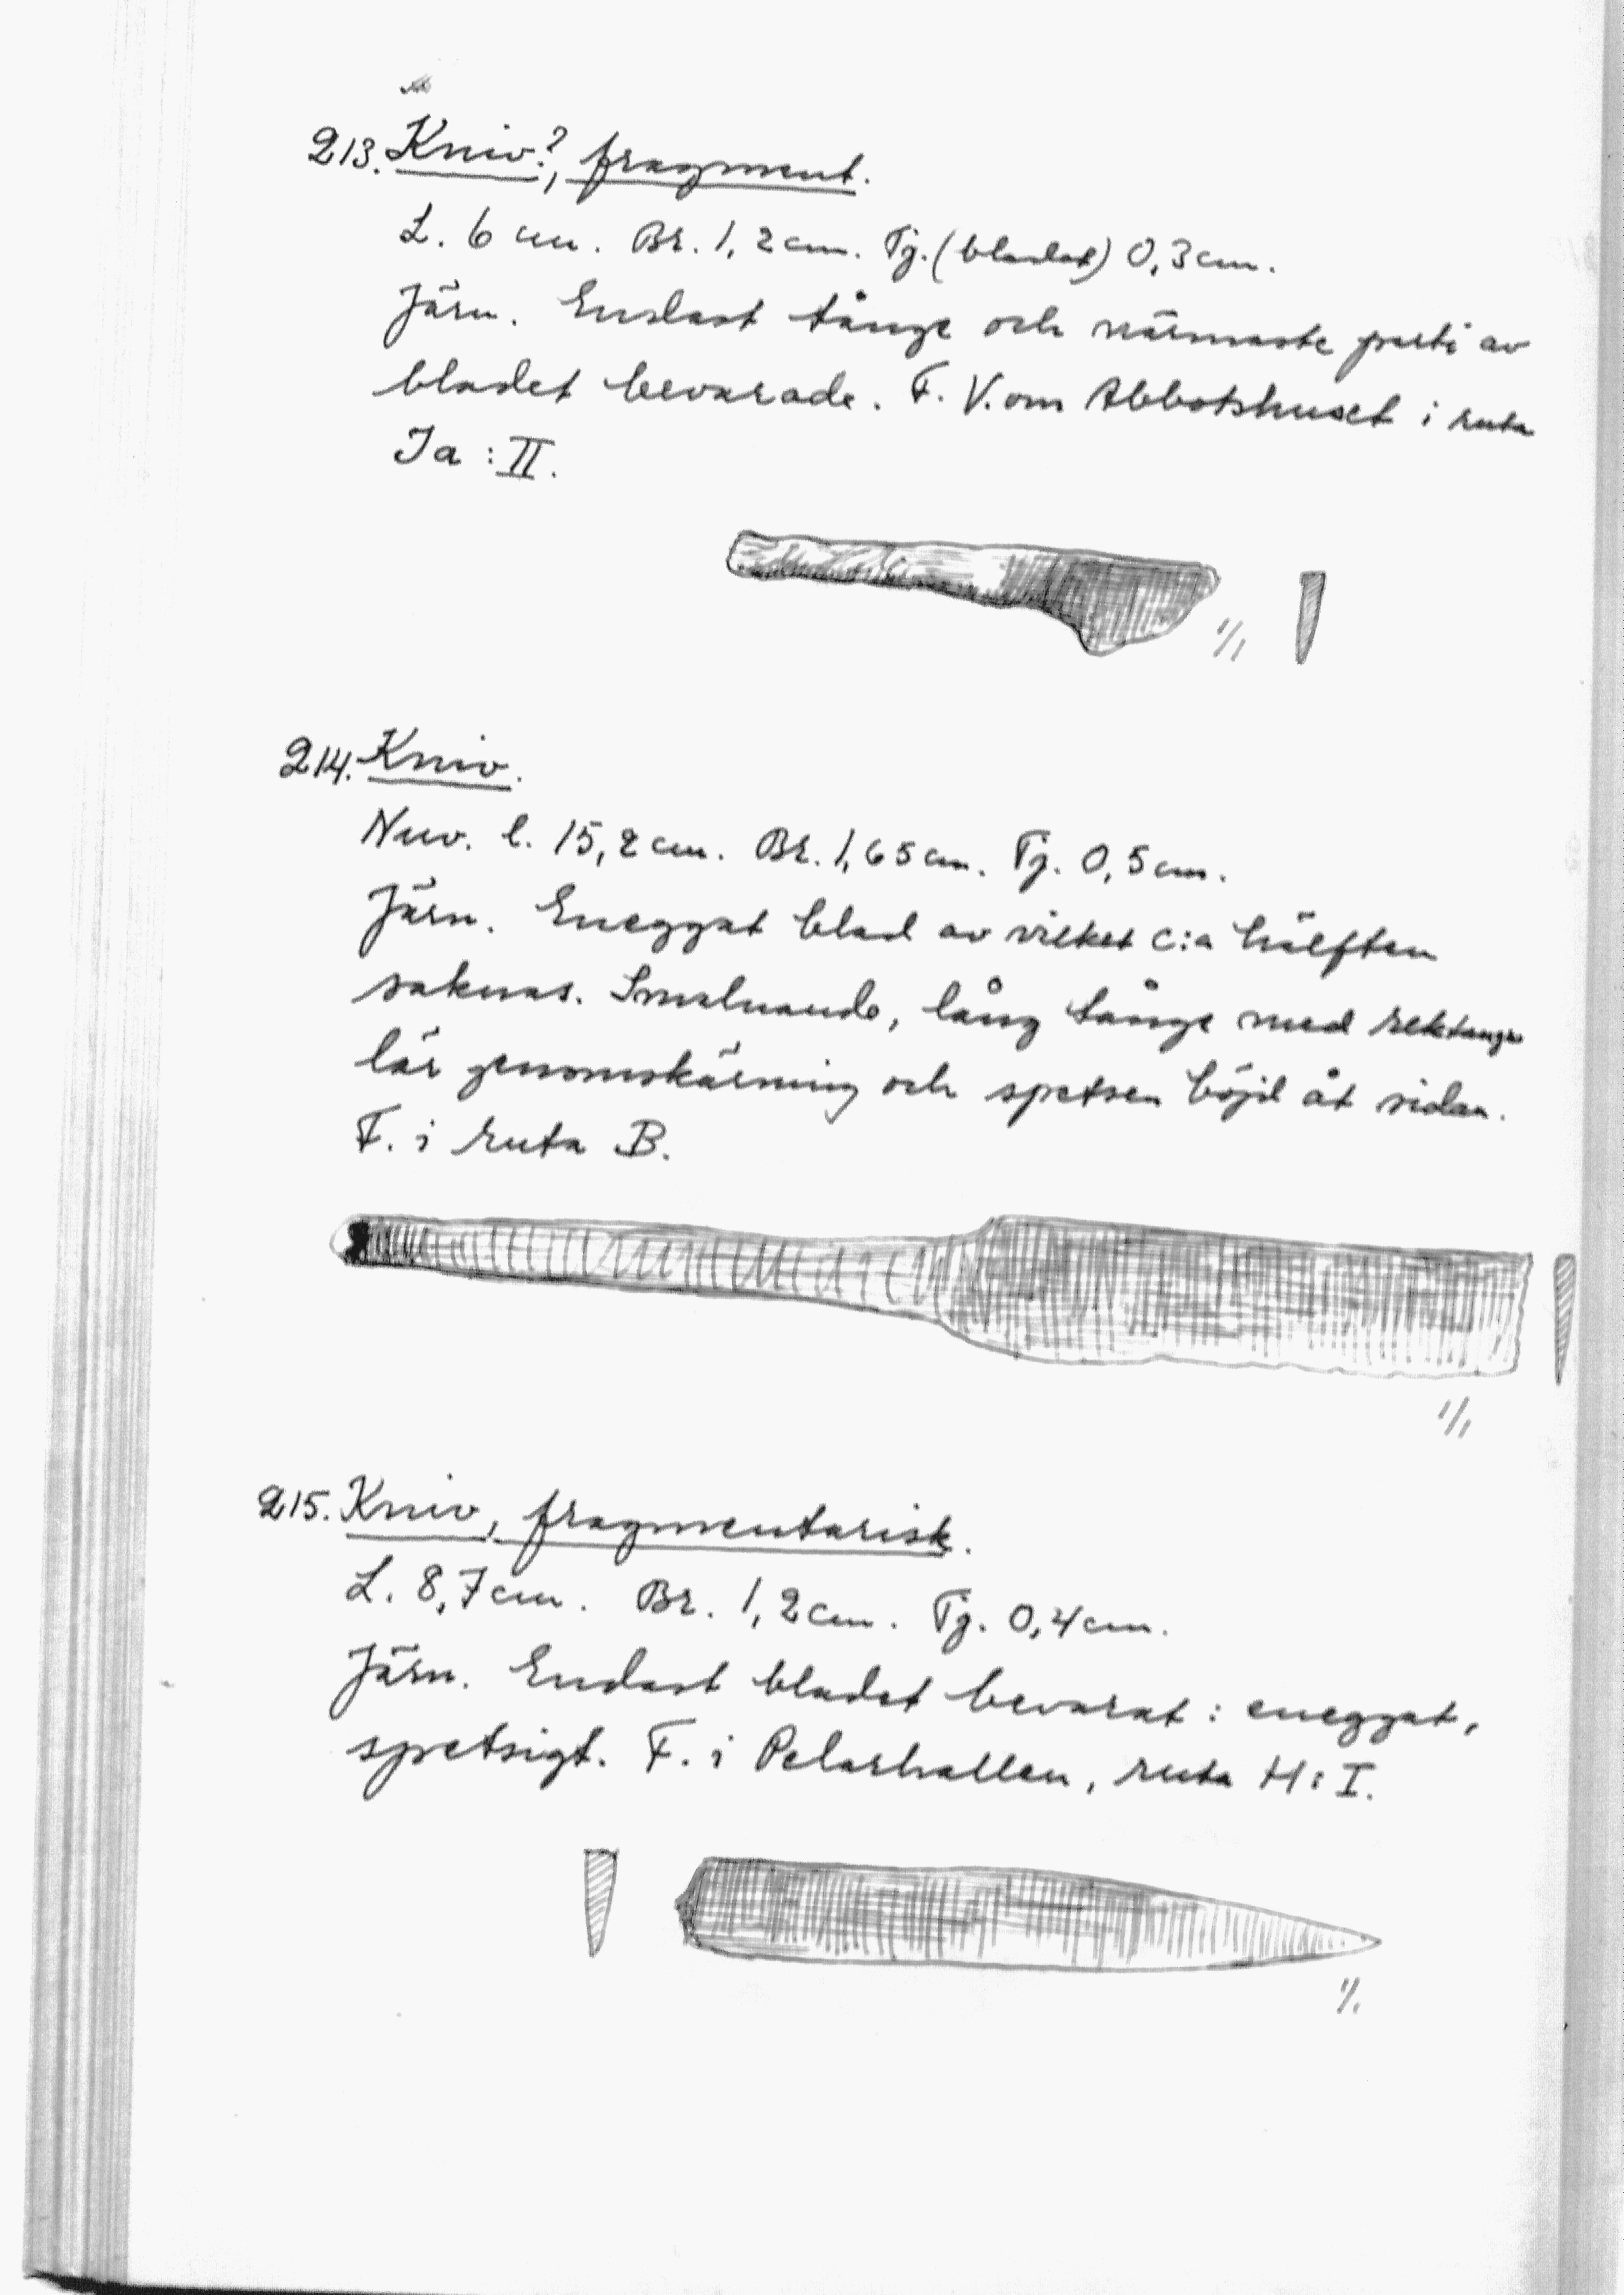 213. Kniv?, fragment.
L. 6 cm. Br. 1,2 cm. Tj. (bladet) 0,3 cm.
Järn. Endast tånge och närmaste parti av
bladet bevarade. F. V. om Abbotshuset i ruta
Ja : II.
1/1
214. Kniv.
Nuv. l. 15,2 cm. Br. 1,65 cm. Tj. 0,5 cm.
Järn. Eneggat blad av vilket c:a hälften
saknas. Smalnande, lång tånge med rektangu
lär genomskärning och spetsen böjd åt sidan.
F. i ruta B.
1/1
215. Kniv, fragmentarisk.
L. 8,7 cm. Br. 1,2 cm. Tj. 0,4 cm.
Järn. Endast bladet bevarat : eneggat,
spetsigt. F. i Pelarhallen, ruta H : I.
1/1